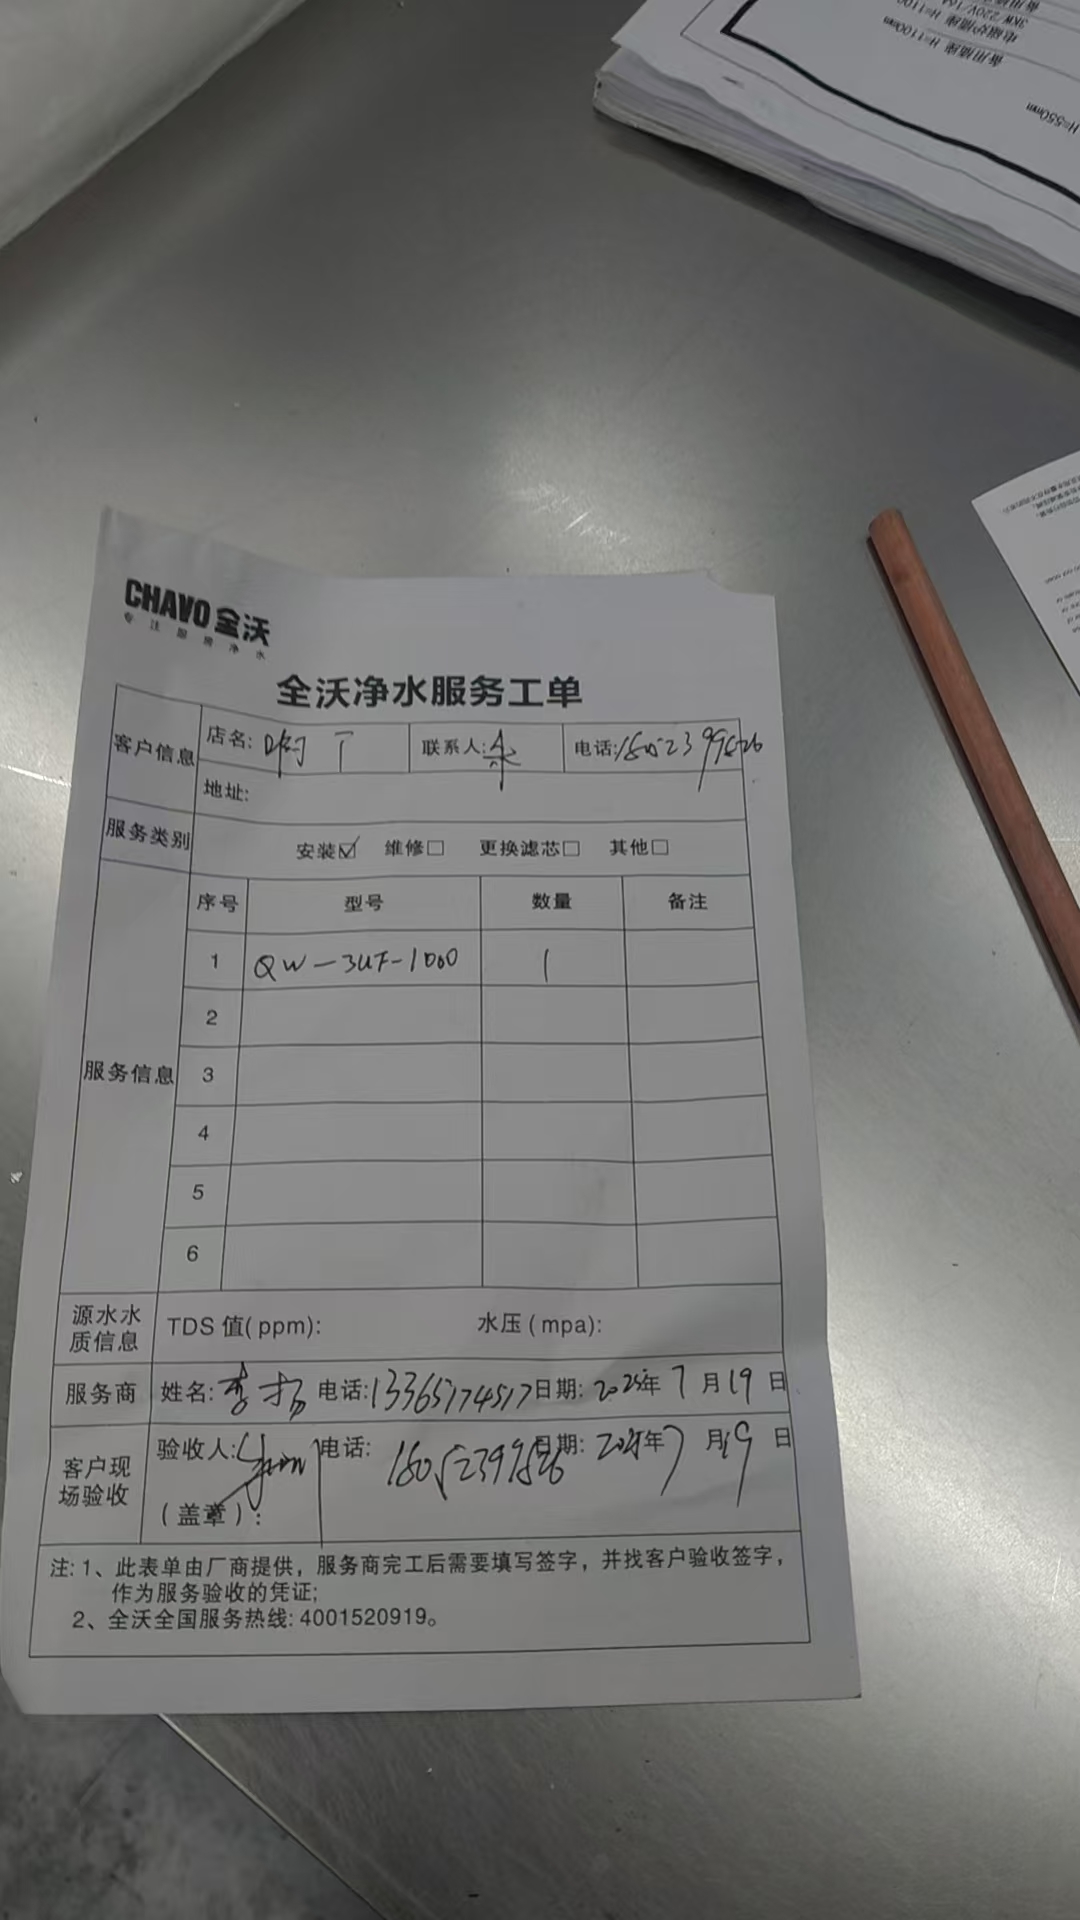 备用插座 H=1100mm
电磁炉插座 H=1100
3KW/220V/16A
H=550mm
CHAVO 全沃
专注厨房净水
全沃净水服务工单
客户信息 店名: 啊丁 联系人: 电话:
地址:
服务类别 安装☑ 维修□ 更换滤芯□ 其他□
服务信息 序号 型号 数量 备注
1 QW-3UF-1000 1
2
3
4
5
6
源水水质信息 TDS 值(ppm): 水压(mpa):
服务商 姓名:李扬 电话:13365174517 日期: 2025年7月19日
客户现场验收 验收人: 电话: 日期: 2025年7月19日
(盖章):
注: 1、此表单由厂商提供，服务商完工后需要填写签字，并找客户验收签字，
作为服务验收的凭证;
2、全沃全国服务热线: 4001520919。